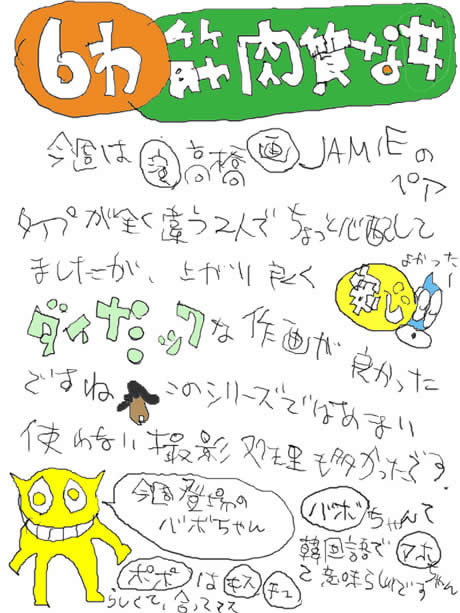 6わ 筋肉質な女
今週は 演 高橋 画 JAMIEの
ペア
タイプが全く違う2人でちょっと心配して
ましたが、上がり良く
よかったー
安心
ダイナミックな作画が
良かった
ですね このシリーズではあまり
使わない撮影処理も多かったです.
今週登場の
バボちゃん
バボちゃんて
韓国語でアホちゃん
て意味らしいです
ポポはキスチュ
らしくて,合ってます